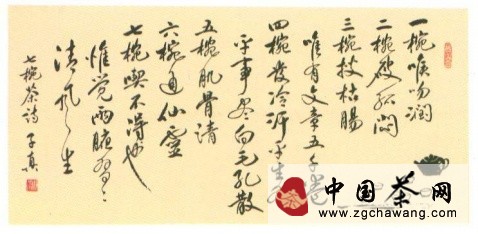 一椀喉吻潤
二椀破孤悶
三椀搜枯腸
唯有文章五千卷
四椀发 汗平生
平事盡向毛孔散
五椀肌骨清
六椀通仙靈
七椀喫不得也
惟觉兩腋習々
清风生
七椀茶诗 子真
中国茶网
www.zgchawang.com